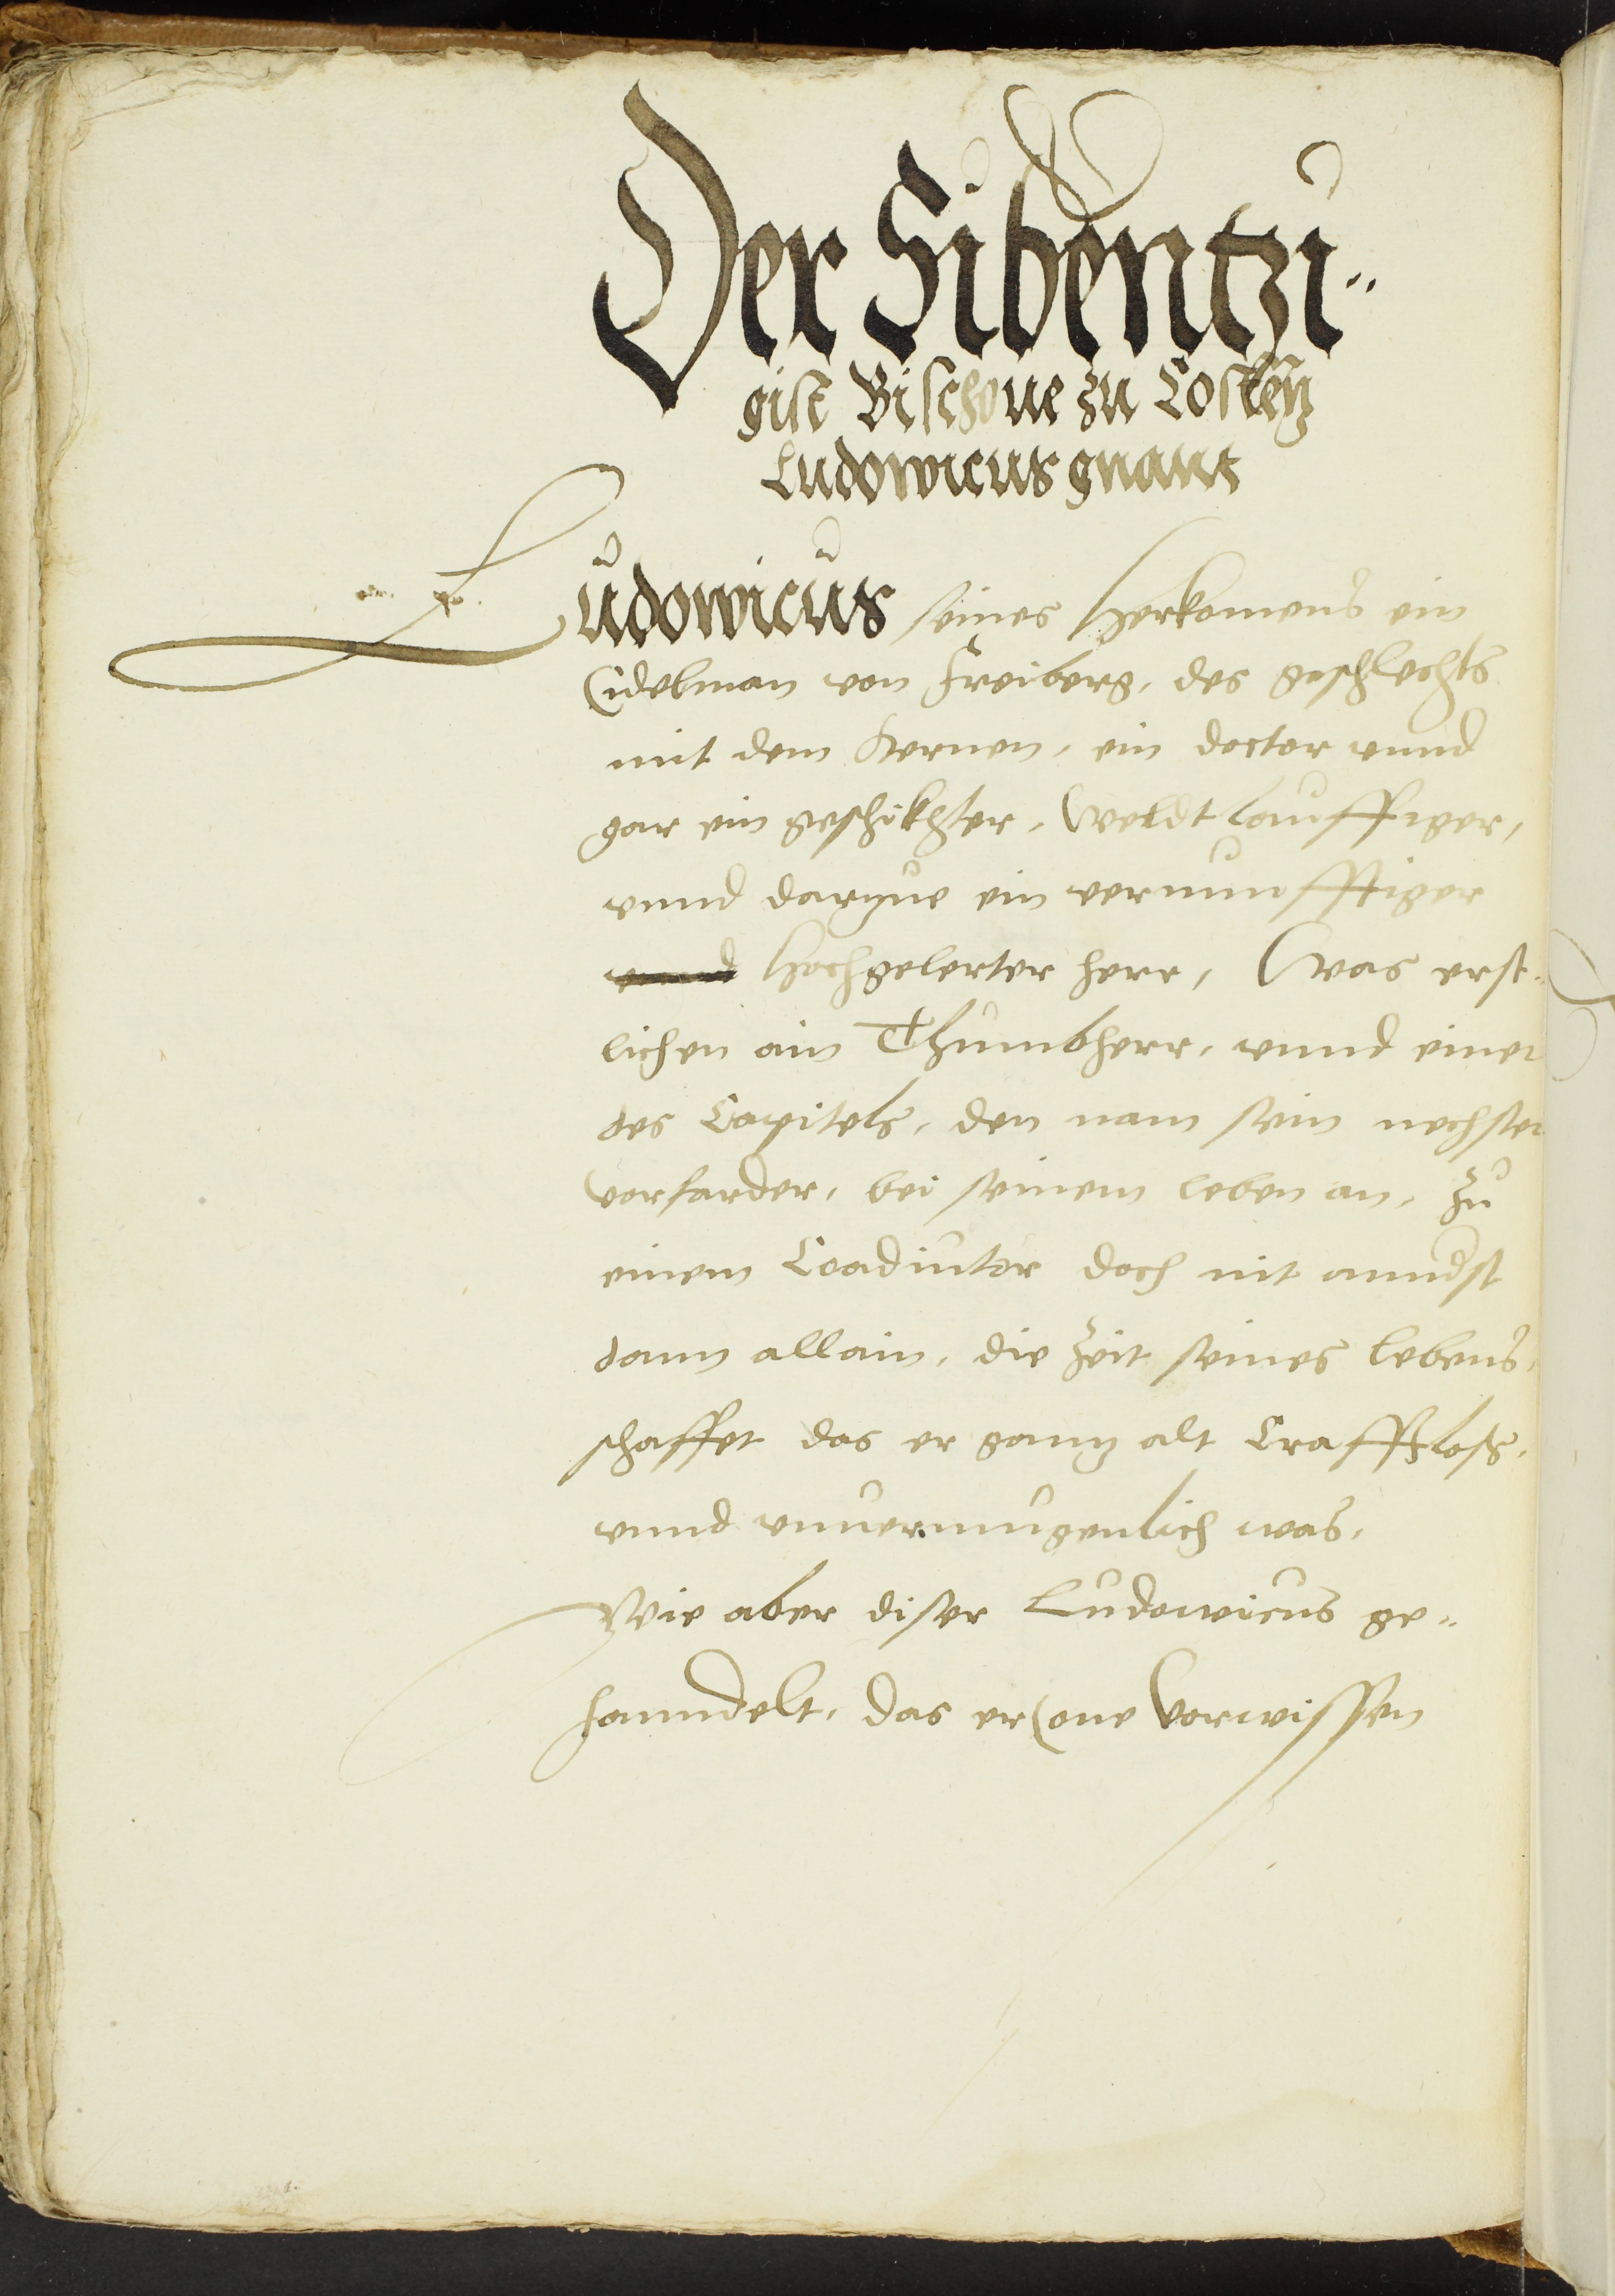 Der Sibentzi¨
gist Bischoue zu Costentz
Ludowicus gnant
Ludowicus seines Herkomens ein
Eidelman von Freiberg, des geschlechts
mit dem Sternen, ein doctor vnnd
gar ein geschikhter, Weldtlouffiger,
vnnd darzue ein vernunfftiger
vnnd Hochgelerter herr, Was erst¨
lichen ain Thumbherr, vnnd einer
des Capitels, den nam sein nechster
vorfarder, bei seinem leben an, zu
einem Coadiutor doch nit annderst
dann allain, die Zeit seines lebens,
schaffet das er gantz alt Crafftloß,
vnnd vnuermugenlich was,
Wie aber diser Ludowicus ge¨
hanndelt, das er (one Vorwissen